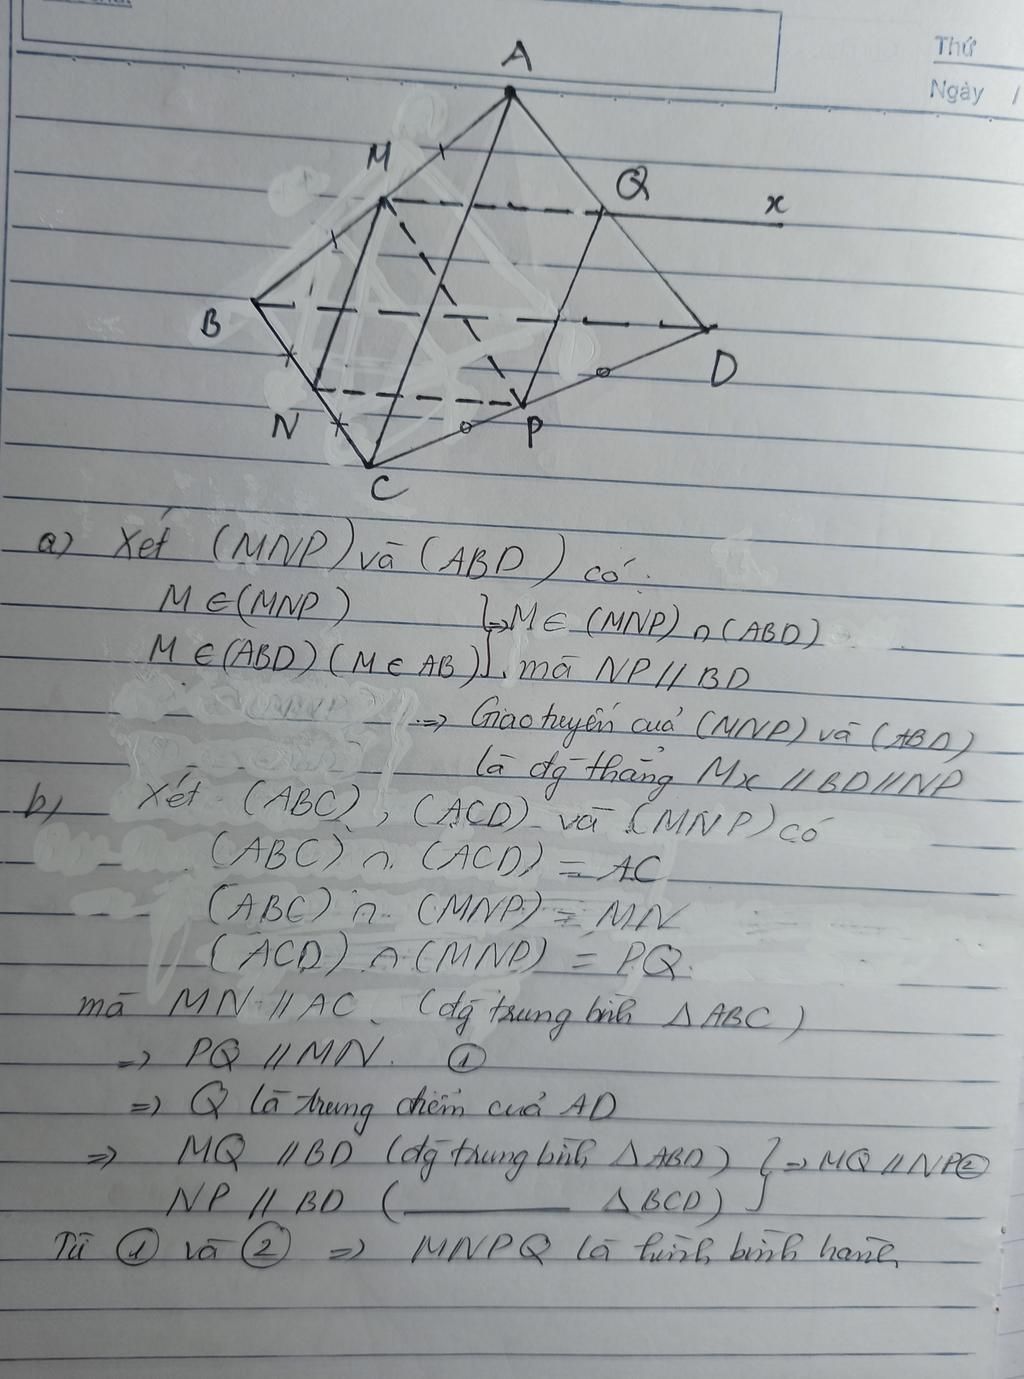 Thứ
Ngày /
A
M
Q
x
B
D
N
P
C
a) Xét (MNP) và (ABD) có.
M ∈ (MNP)
} => M ∈ (MNP) ∩ (ABD)
M ∈ (ABD) (M ∈ AB)
mà NP // BD
=> Giao tuyến của (MNP) và (ABD)
là đg thẳng Mx // BD // NP
b) Xét (ABC), (ACD) và (MNP) có
(ABC) ∩ (ACD) = AC
(ABC) ∩ (MNP) = MN
(ACD) ∩ (MNP) = PQ.
mà MN // AC. (đg trung bình ΔABC)
=> PQ // MN. ①
=> Q là trung điểm của AD
=> MQ // BD (đg trung bình ΔABD) } => MQ // NP ②
NP // BD ( ——— ΔBCD)
Từ ① và ② => MNPQ là hình bình hành